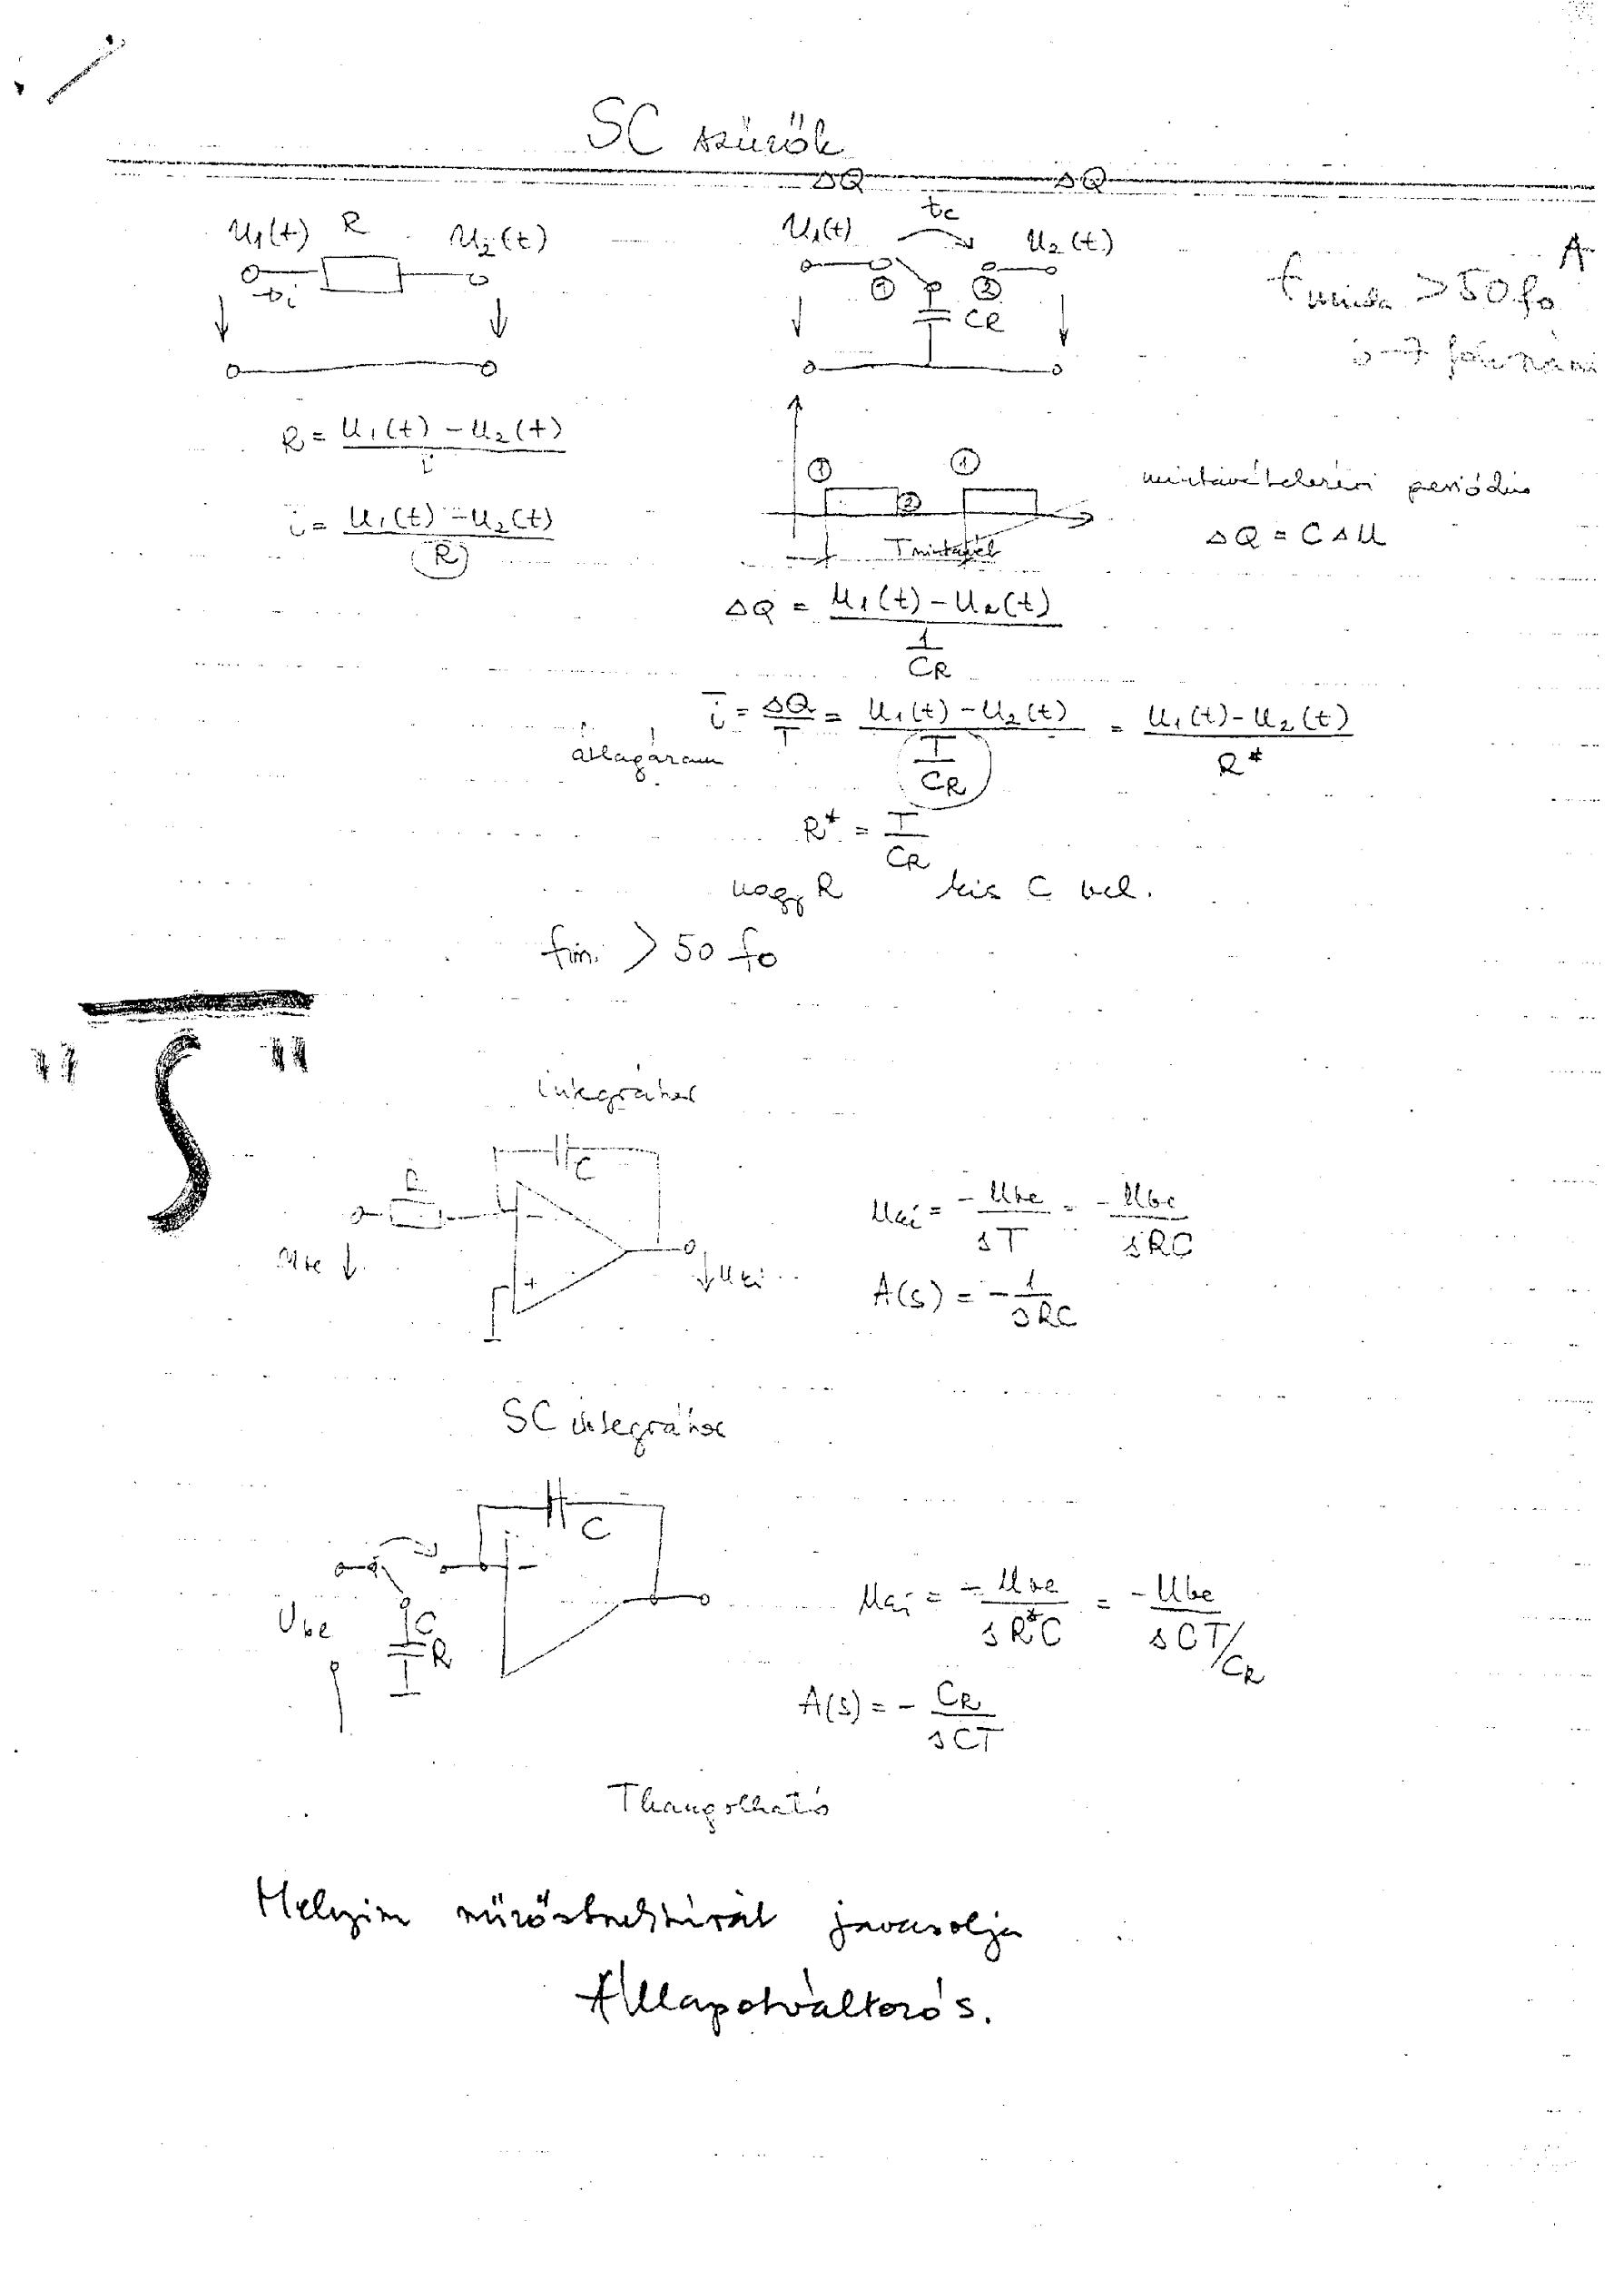 SC szűrők
ΔQ ΔQ
u₁(t) R u₂(t)
i
u₁(t) tc u₂(t)
① ② CR
A
f minta > 50 f₀
R = (u₁(t) - u₂(t)) / i
i = (u₁(t) - u₂(t)) / R
① ② ①
T mintavét
mintavételezési periódus
ΔQ = C ΔU
ΔQ = (u₁(t) - u₂(t)) / (1/CR)
átlagáram i = ΔQ/T = (u₁(t) - u₂(t)) / (T/CR) = (u₁(t) - u₂(t)) / R*
R* = T/CR
nagy R kis C vel.
fm. > 50 f₀
"S"
integrátor
R C
- +
ube uki
uki = -ube/sT = -ube/sRC
A(s) = -1/sRC
SC integrátor
C
-
Ube CR
uki = -ube/sR*C = -ube/sCT/CR
A(s) = - CR/sCT
T hangolható
javasolja
Állapotváltozós.